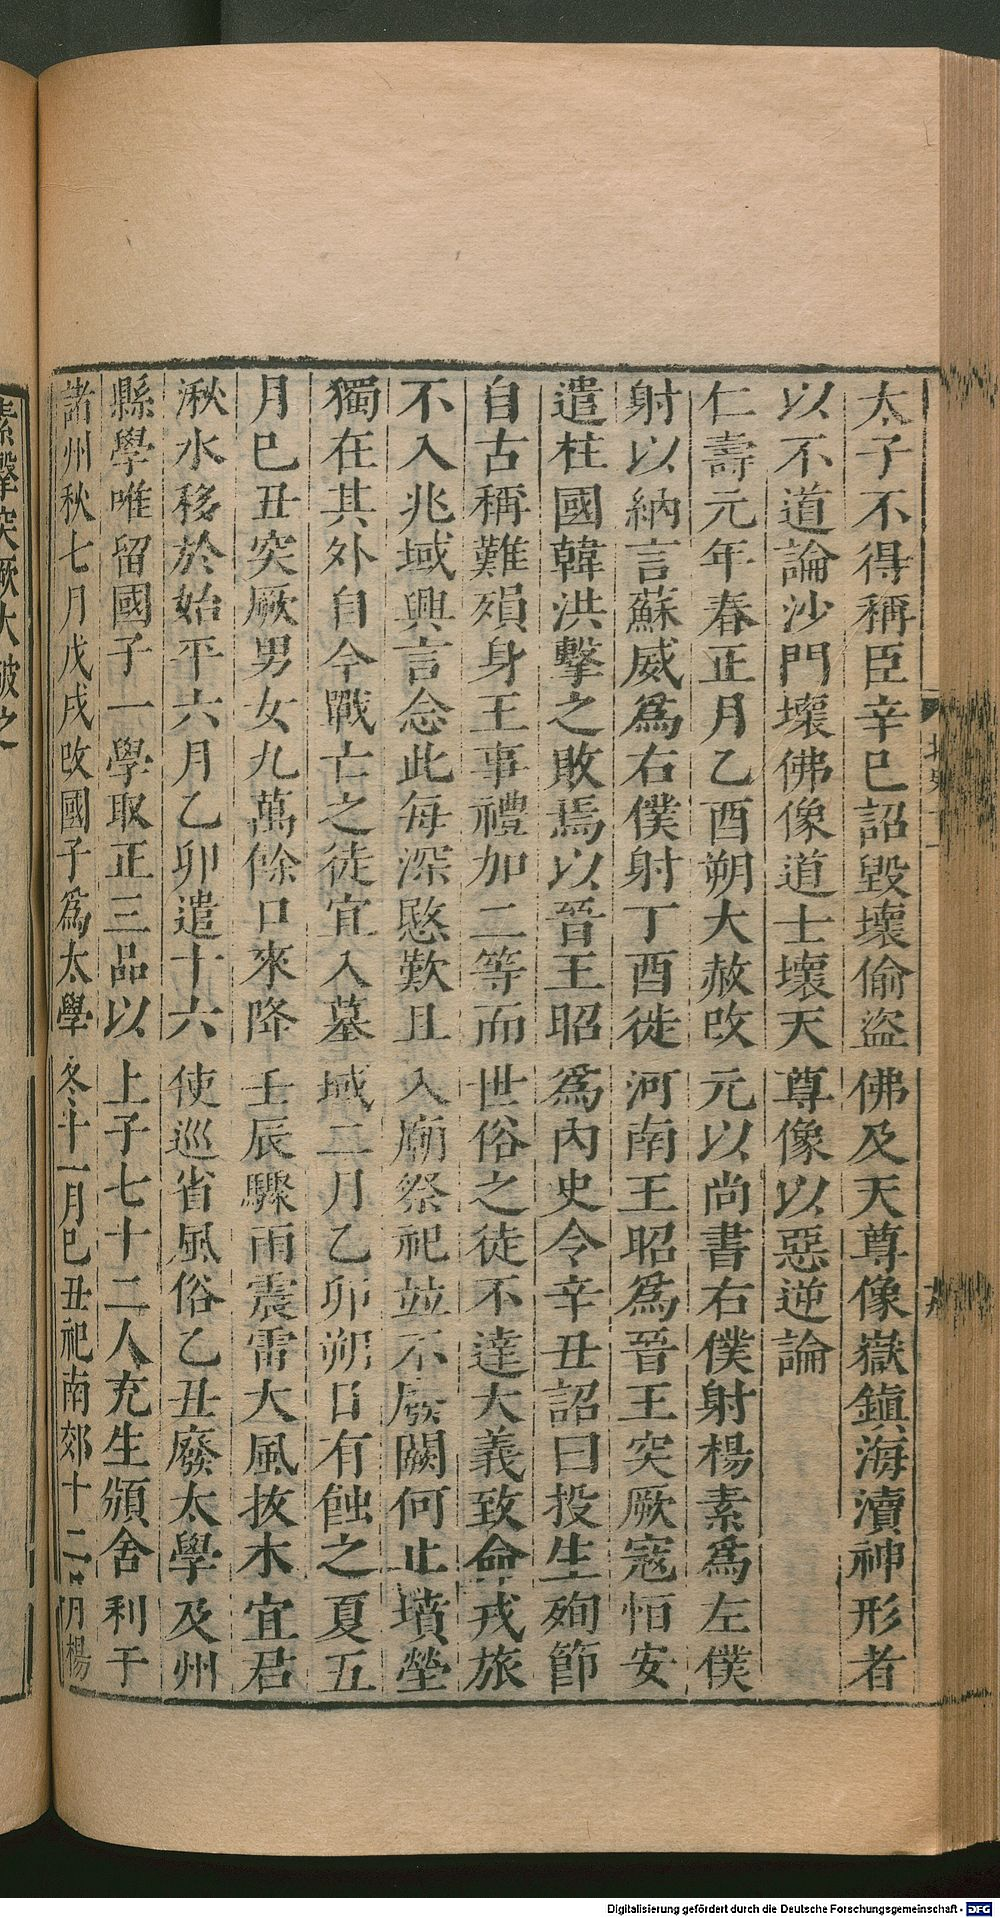 太子不得稱臣辛巳詔毀壞偷盜佛及天尊像嶽鎮海瀆神形者
以不道論沙門壞佛像道士壞天尊像以惡逆論
仁壽元年春正月乙酉朔大赦改元以尚書右僕射楊素爲左僕
射以納言蘇威爲右僕射丁酉徙河南王昭爲晉王突厥寇恒安
遣柱國韓洪擊之敗焉以晉王昭爲內史令辛丑詔曰投生殉節
自古稱難殞身王事禮加二等而世俗之徒不達大義致命戎旅
不入兆域興言念此每深愍歎且入廟祭祀竝不廢闕何止墳塋
獨在其外自今戰亡之徒宜入墓域二月乙卯朔日有蝕之夏五
月巳丑突厥男女九萬餘口來降壬辰驟雨震雷大風拔木宜君
湫水移於始平六月乙卯遣十六使巡省風俗乙丑廢太學及州
縣學唯留國子一學取正三品以上子七十二人充生頒舍利于
諸州秋七月戊戌改國子爲太學冬十一月巳丑祀南郊十二月楊
素擊突厥大破之
Digitalisierung gefördert durch die Deutsche Forschungsgemeinschaft - DFG